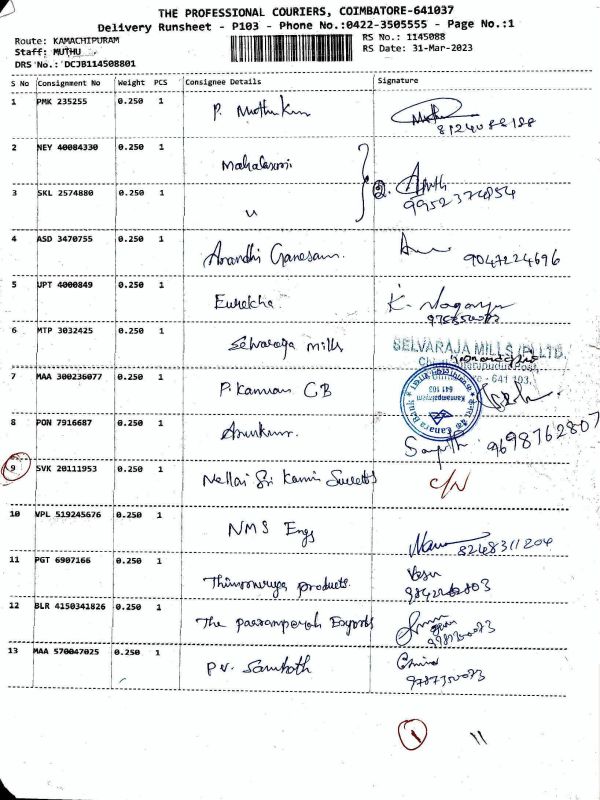 THE PROFESSIONAL COURIERS, COIMBATORE-641037
Delivery Runsheet - P103 - Phone No.:0422-3505555 - Page No.:1
Route: KAMACHIPURAM
RS No.: 1145088
Staff: MUTHU
RS Date: 31-Mar-2023
DRS No.: DCJB114508801
S No Consignment No Weight PCS Consignee Details Signature
1 PMK 235255 0.250 1 P. Muthu Kum
8124088188
2 NEY 40084330 0.250 1 Mahalaxmi
3 SKL 2574880 0.250 1 u 9952374854
4 ASD 3470755 0.250 1 Anandhi Ganesan. 9047224696
5 UPT 4000849 0.250 1 Eurekha. K.
6 MTP 3032425 0.250 1 Selvaraja mills SELVARAJA MILLS (P) LTD.
641 103.
7 MAA 300236077 0.250 1 P. Kannan CB
Canara Bank
641 103
8 PON 7916687 0.250 1 Arunkumr. 9698762807
9 SVK 20111953 0.250 1 Nellai Sri Kanni Sweets C/N
10 VPL 519245676 0.250 1 NMS Engs 8248311204
11 PGT 6907166 0.250 1 products. Vasu
12 BLR 4150341826 0.250 1 The Exports
13 MAA 570047025 0.250 1 P.V. Samkoth
9787350073
1 11